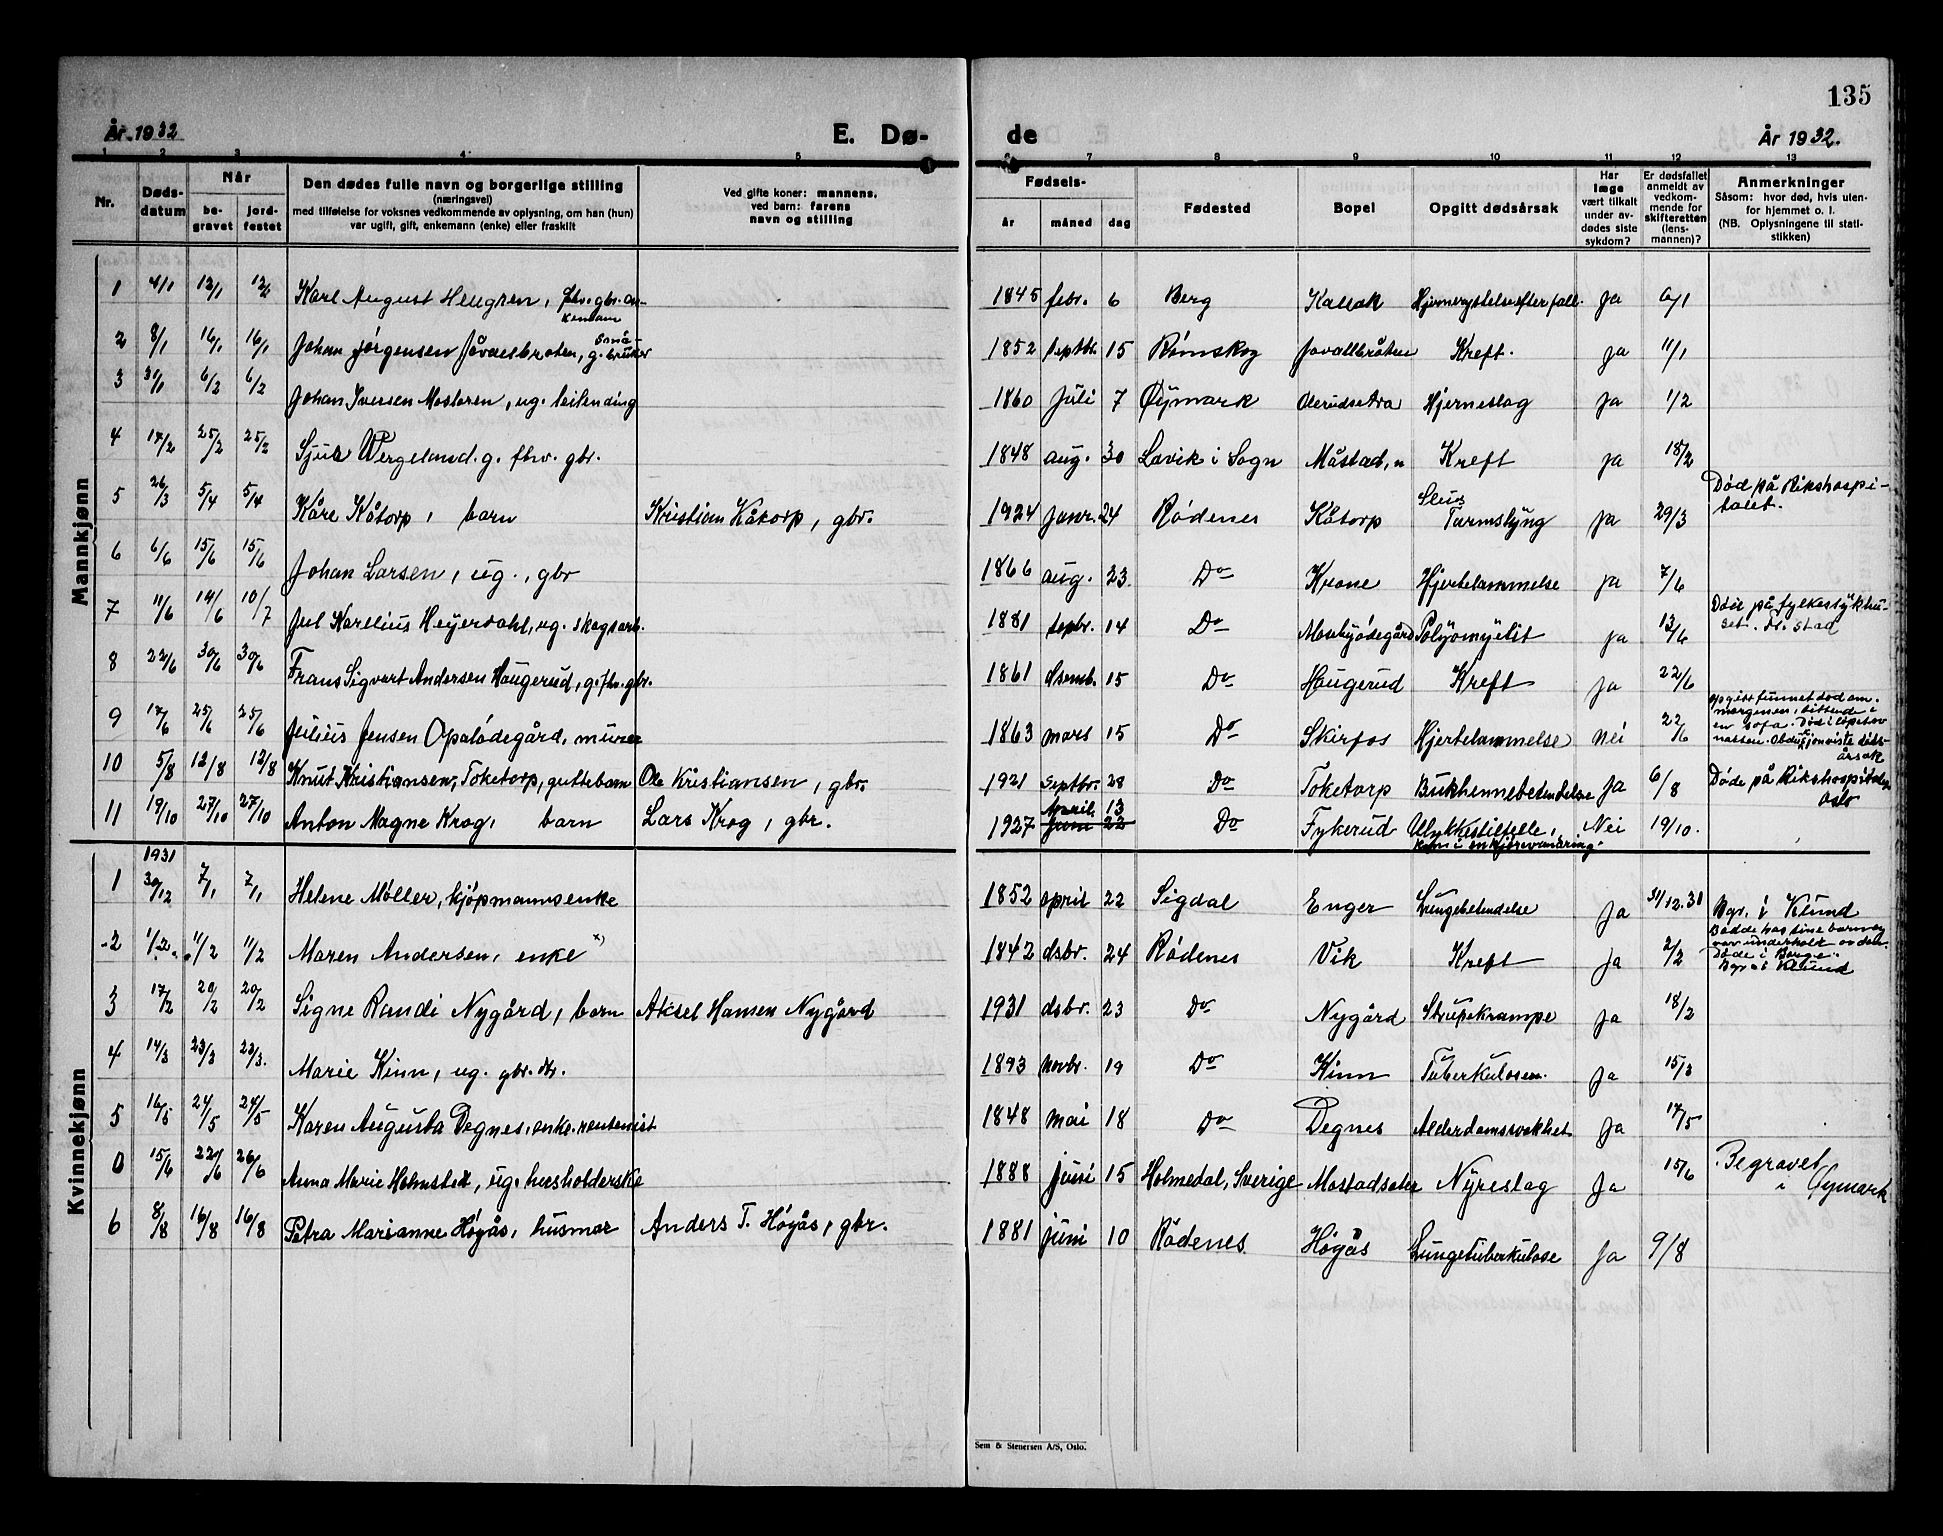 135
År 1932
E. Dø-
de
År 1932.
1 2 3 4 5 6 7 8 9 10 11 12 13
Nr.
Døds-
datum
Når
be-
gravet
jord-
festet
Den dødes fulle navn og borgerlige stilling
(næringsvei)
med tilføielse for voksnes vedkommende av oplysning, om han (hun)
var ugift, gift, enkemann (enke) eller fraskilt
Ved gifte koner: mannens,
ved barn: farens
navn og stilling
Fødsels-
år
måned
dag
Fødested
Bopel
Opgitt dødsårsak
Har
læge
vært tilkalt
under av-
dødes siste
sykdom?
Er dødsfallet
anmeldt av
vedkom-
mende for
skifteretten
(lens-
mannen)?
Anmerkninger
Såsom: hvor død, hvis uten-
for hjemmet o. l.
(NB. Oplysningene til stati-
stikken)
Mannkjønn
1 4/1 12/1 12/1 Karl August Heugren, fhv. gbr. en-
kemann
1845 febr. 6 Berg Kallak Hjernerystelse efter fall. Ja 6/1
2 8/1 16/1 16/1 Johan Jørgensen Jåvallbråten, g. små-
bruker
1852 septbr. 15 Rømskog Jovallbråten Kreft. Ja 11/1
3 31/1 6/2 6/2 Johan Iversen Mosloren, ug. leilending
1860 Juli 7 Øymark Olerudsetra Hjerneslag Ja 1/2
4 17/2 25/2 25/2 Sjur Wergeland. g. fhv. gbr.
1848 aug. 30 Lavik i Sogn Måstad, n Kreft ja 18/2
5 26/3 5/4 5/4 Kåre Kåtorp, barn Kristian Kåtorp, gbr.
1924 janr. 24 Rødenes Kåtorp Tarmslyng ja 29/3 Død på Rikshospi-
talet.
6 6/6 15/6 15/6 Johan Larsen, ug., gbr
1866 aug. 23 Do Krone Hjertelammelse ja 7/6
7 11/6 14/6 10/7 Jul Karelius Heyerdahl, ug. skogsarb.
1881 sepbr. 14 Do Polyomyelit ja 13/6 Død på fylkessykehu-
set. Fr. stad
8 22/6 30/6 30/6 Frans Sigvart Andersen Haugerud, g. fhv. gbr.
1861 dsemb. 15 Do Haugerud Kreft Ja 22/6
9 17/6 25/6 25/6 Julius Jensen Opalødegård, murer
1863 mars 15 Do Skirfos Hjertelammelse nei 22/6 opgitt funnet død om
morgenen, sittende i
en sofa. Død i løpet av
natten. Obduksjon viste døds-
årsak
10 5/8 12/8 12/8 Knut Kristiansen, Toketorp, guttebarn Ole Kristiansen, gbr.
1921 septbr. 28 Do Toketorp Bukhinnebetendelse Ja 6/8 Døde på Rikshospitalet
Oslo
11 19/10 27/10 27/10 Anton Magne Krog, barn Lars Krog, gbr.
April 13
1927 Juni 22 Do Fykerud Ulykkestilfelle, Nei 19/10.
Kvinnekjønn
1931
1 30/12 7/1 7/1 Helene Møller, kjøpmannsenke
1852 april 22 Sigdal Enger Lungebetendelse Ja 31/12.31 Bgr. i Klund
2 1/2 11/2 11/2 Maren Andersen, enke x)
1842 dsbr. 24 Rødenes Vik Kreft Ja 2/2 Bodde hos sine barn og
var underholdt av dem.
Døde i Borge.
Bgr. i Klund
3 17/2 20/2 20/2 Signe Randi Nygård, barn Aksel Hansen Nygård
1931 dsbr. 23 Do Nygård Strupekrampe Ja 18/2
4 14/3 23/3 23/3. Marie Kinn, ug. gbr. dtr.
1893 novbr. 19 Do Kinn Tuberkulosen. Ja 15/3
5 16/5 24/5 24/5 Karen Augusta Degnes, enke, rentenist
1848 mai 18 Do Degnes Alderdomssvakhet Ja 17/5
0 15/6 22/6 26/6 Anna Marie Holmstett, ug. husholderske
1888 juni 15 Holmedal, Sverige Mostadsæter Nyreslag Ja 15/6 Begravet
i Øymark
6 8/8 16/8 16/8 Petra Marianne Høgås, husmor Anders T. Høgås, gbr.
1881 juni 10 Rødenes Høgås Lungetuberkulose Ja 9/8
Sem & Stenersen A/S, Oslo.